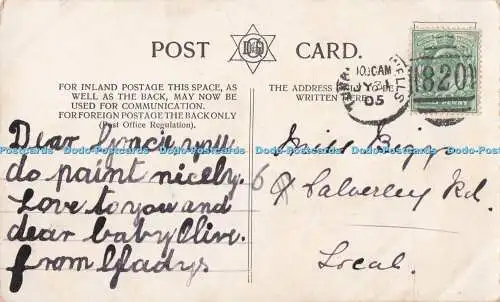 POST CARD.
D & G
FOR INLAND POSTAGE THIS SPACE, AS
WELL AS THE BACK, MAY NOW BE
USED FOR COMMUNICATION.
FOR FOREIGN POSTAGE THE BACK ONLY
(Post Office Regulation).
THE ADDRESS ONLY TO BE
WRITTEN HERE.
WELLS
JY 31
05
820
Dear you
do paint nicely.
Love to you and
dear baby Olive.
From Gladys
Miss
6 Calverley Rd.
Local.
Dodo-Postcards Dodo-Postcards Dodo-Postcards Dodo-Postcards